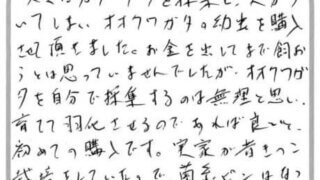 いてしまい、オオクワガタの幼虫を購入
させて頂きました。お金を出してまで飼お
うとは思っていませんでしたが、オオクワガ
タを自分で採集するのは無理と思い、
育てて羽化させるのであれば良いと、
初めての購入です。実家が昔きのこ
栽培をしていたので、菌糸ビンはなつ